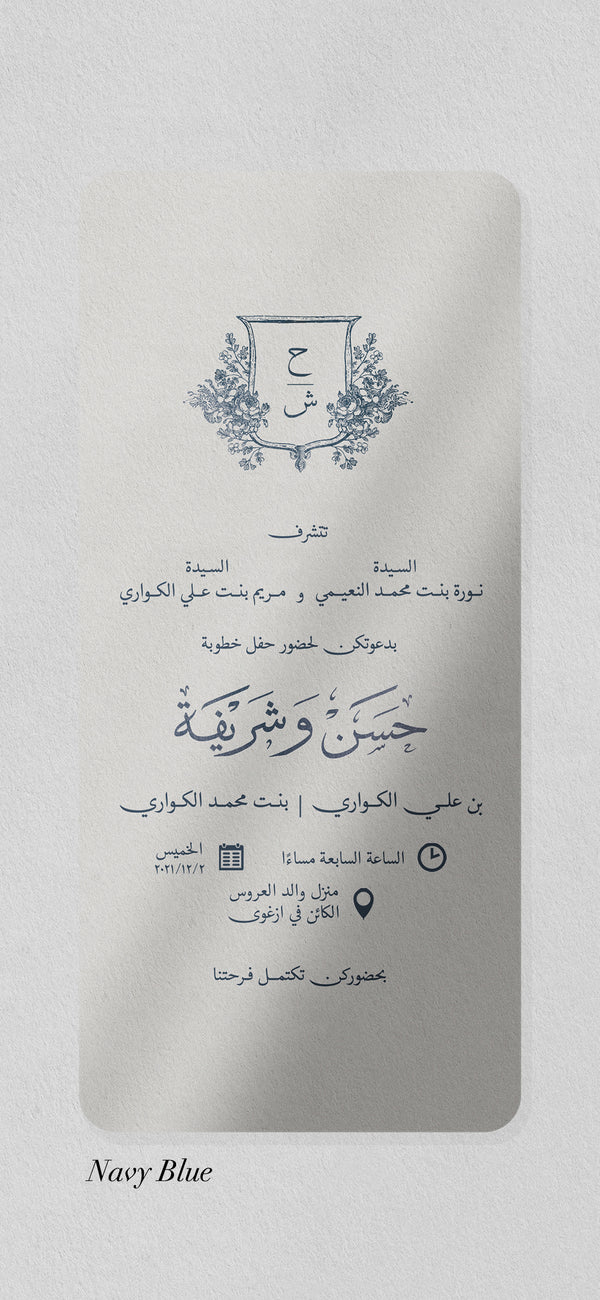 ح
ش
تتشرف
السيدة السيدة
نورة بنت محمد النعيمي و مريم بنت علي الكواري
بدعوتكن لحضور حفل خطوبة
حَسَنْ وَشَرِيْفَة
بن علي الكواري | بنت محمد الكواري
الساعة السابعة مساءًا
الخميس
٢٠٢١/١٢/٢
منزل والد العروس
الكائن في ازغوى
بحضوركن تكتمل فرحتنا
Navy Blue